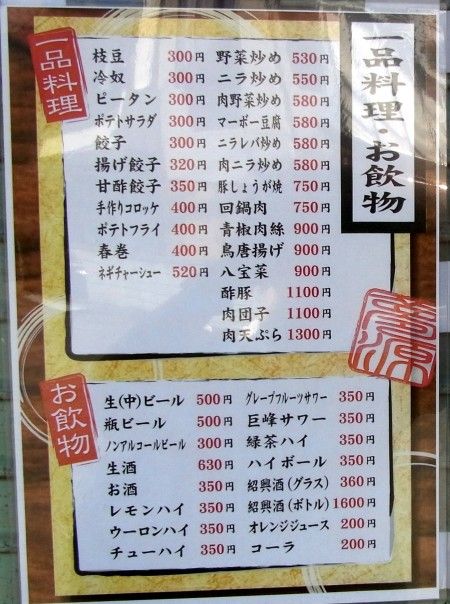 一品料理・お飲物
一品料理
枝豆 300円
冷奴 300円
ピータン 300円
ポテトサラダ 300円
餃子 300円
揚げ餃子 320円
甘酢餃子 350円
手作りコロッケ 400円
ポテトフライ 400円
春巻 400円
ネギチャーシュー 520円
野菜炒め 530円
ニラ炒め 550円
肉野菜炒め 580円
マーボー豆腐 580円
ニラレバ炒め 580円
肉ニラ炒め 580円
豚しょうが焼 750円
回鍋肉 750円
青椒肉絲 900円
鳥唐揚げ 900円
八宝菜 900円
酢豚 1100円
肉団子 1100円
肉天ぷら 1300円
お飲物
生(中)ビール 500円
瓶ビール 500円
ノンアルコールビール 300円
生酒 630円
お酒 350円
レモンハイ 350円
ウーロンハイ 350円
チューハイ 350円
グレープフルーツサワー 350円
巨峰サワー 350円
緑茶ハイ 350円
ハイボール 350円
紹興酒(グラス) 360円
紹興酒(ボトル) 1600円
オレンジジュース 200円
コーラ 200円